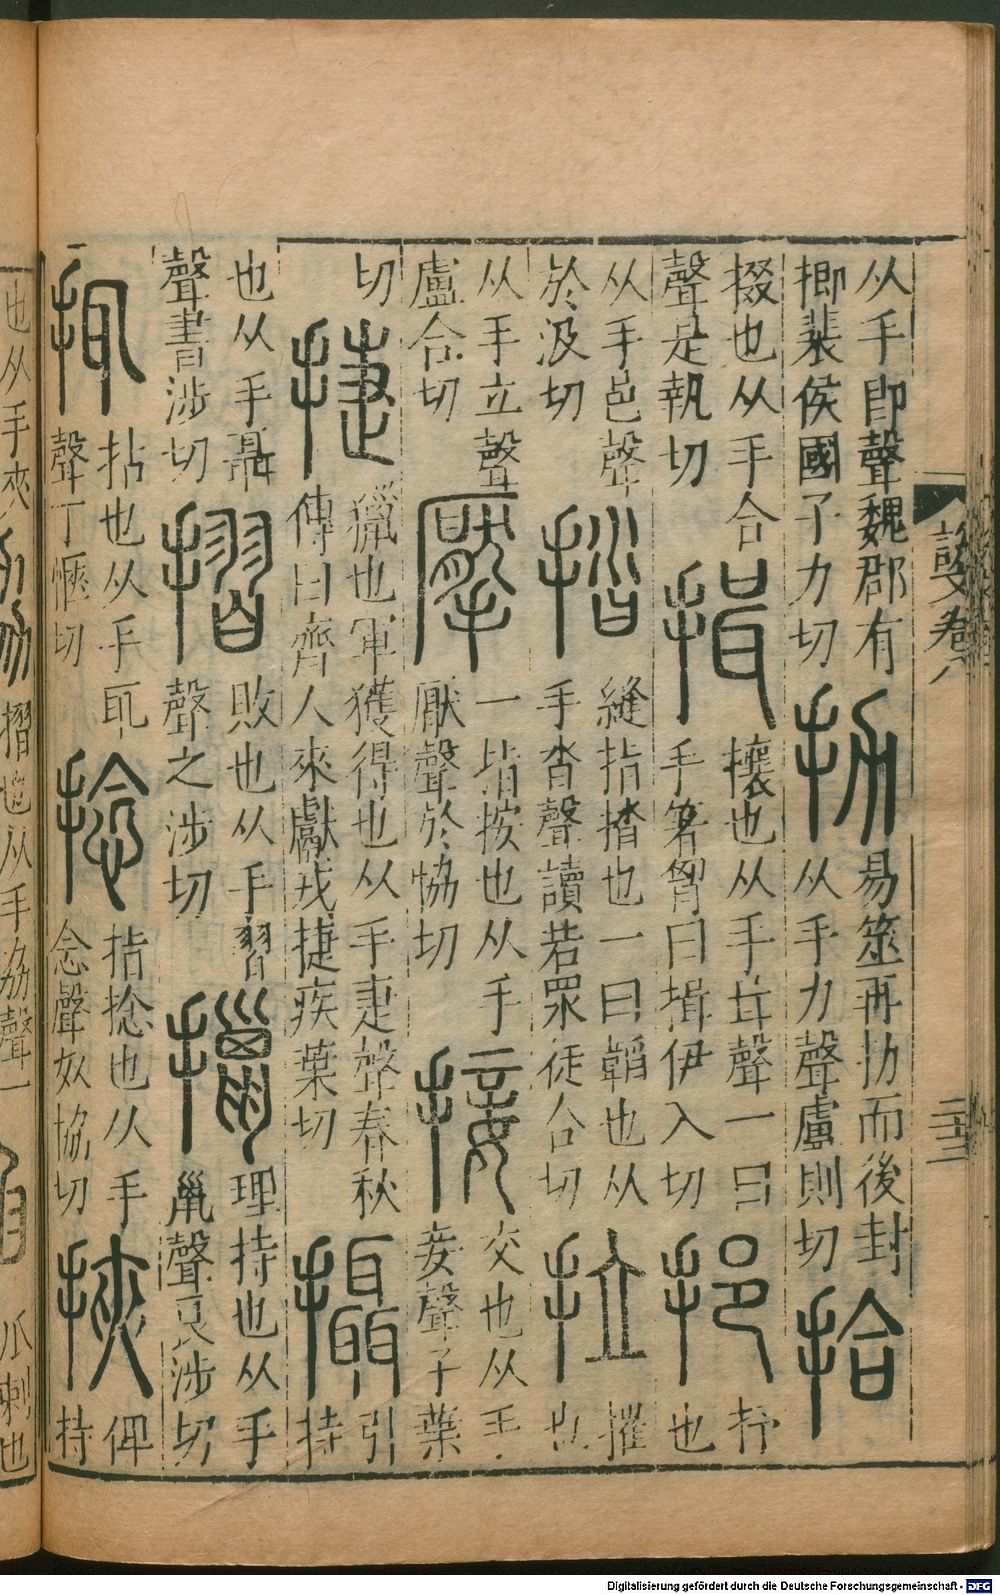 从手卽聲魏郡有
揤裴侯國子力切
扐
易筮再扐而後封
从手力聲盧則切
拾
掇也从手合
聲是執切
揖
攘也从手咠聲一曰
手箸胷曰揖伊入切
挹
抒
也
从手邑聲
於汲切
縫指也一曰韜也从
手沓聲讀若眾徒合切
拉
摧
也
从手立聲
盧合切
擪
一指按也从手
厭聲於協切
接
交也从手
妾聲子葉
切
捷
獵也軍獲得也从手疌聲春秋
傳曰齊人來獻戎捷疾葉切
攝
引
持
也从手聶
聲書涉切
摺
敗也从手習
聲之涉切
擸
理持也从手
巤聲良涉切
拈也从手耴
聲丁愜切
捻
指捻也从手
念聲奴協切
挾
俾
持
說文卷八
二十三
也从手夾
拹
摺也从手劦聲一
Digitalisierung gefördert durch die Deutsche Forschungsgemeinschaft - DFG